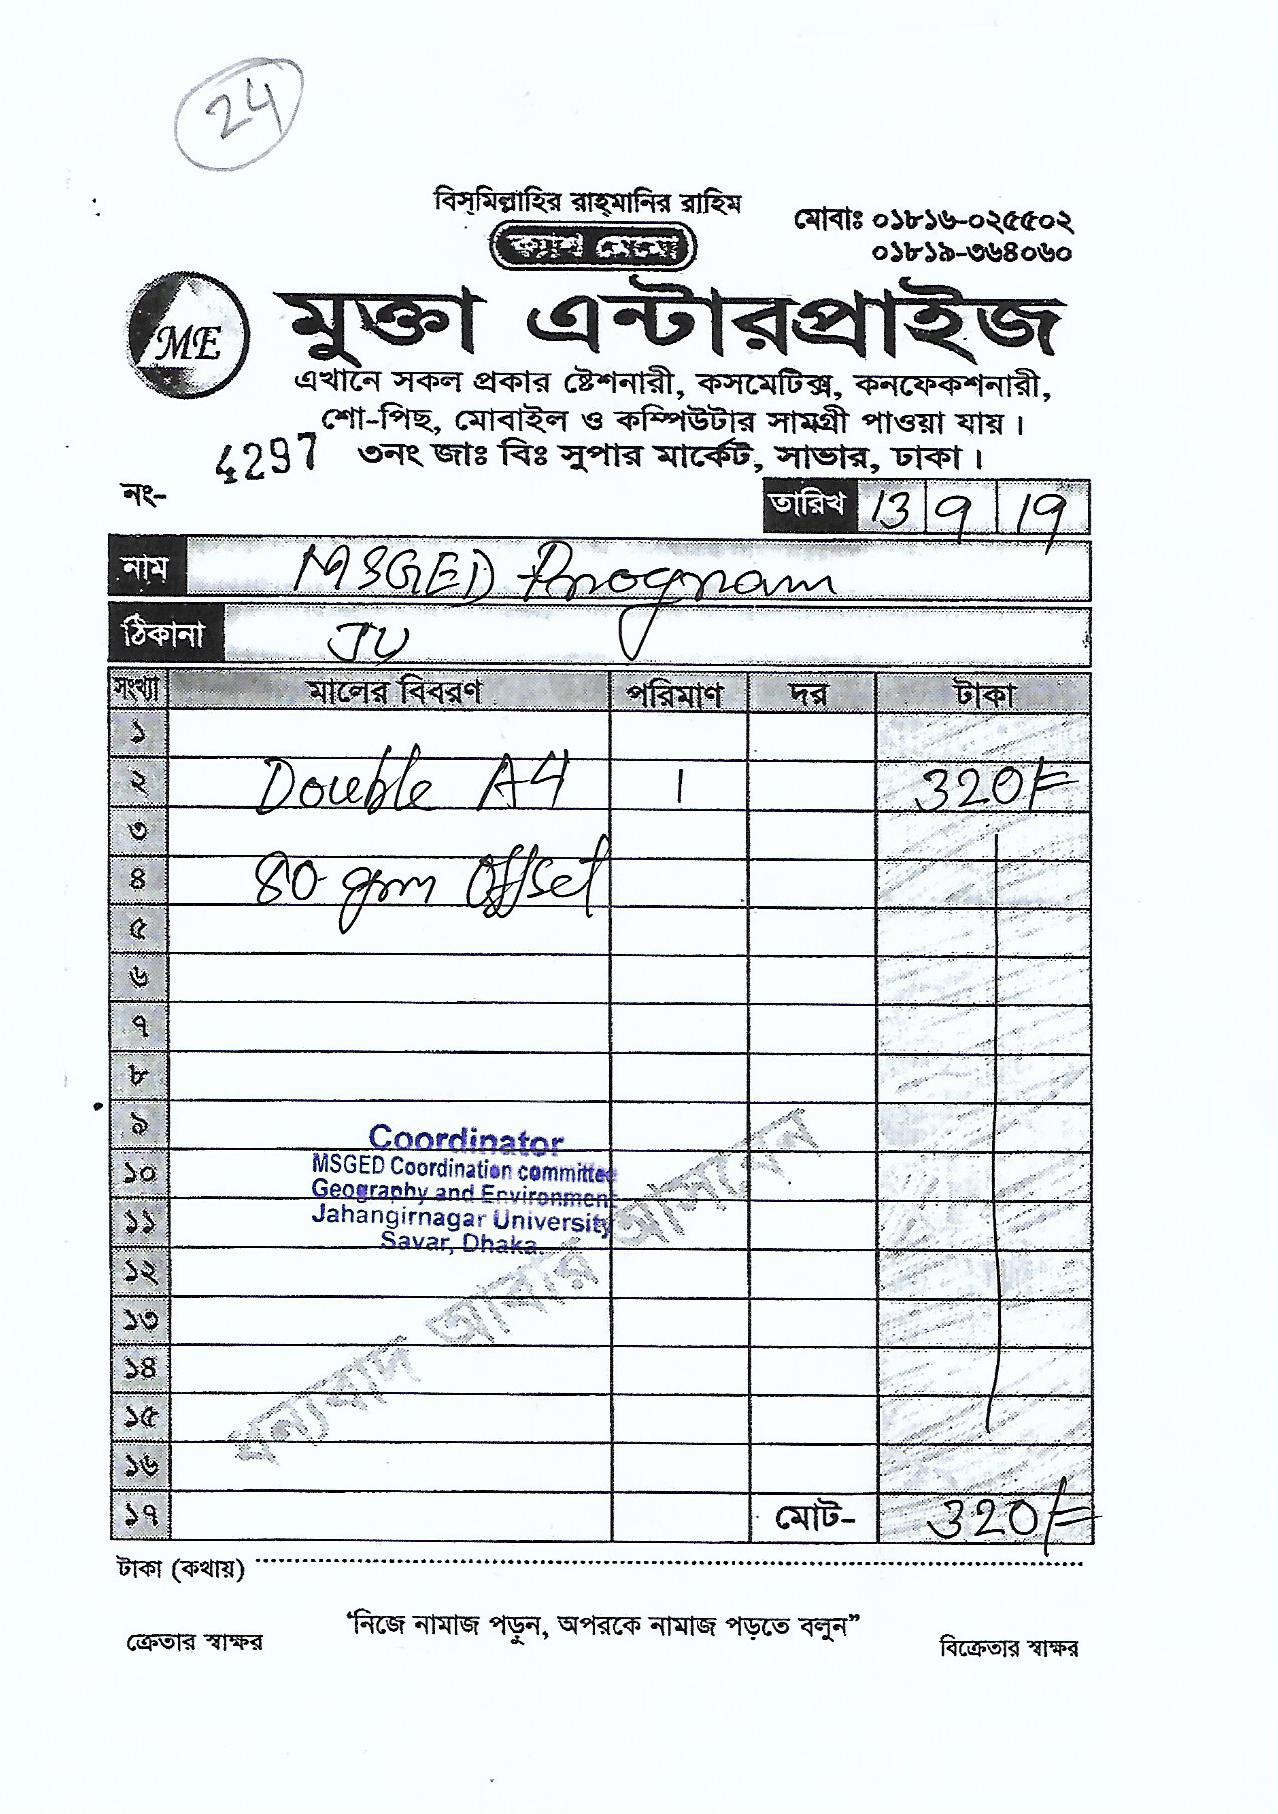 24
বিস্‌মিল্লাহির রাহ্‌মানির রাহিম
ক্যাশ মেমো
মোবাঃ ০১৮১৬-০২৫৫০২
০১৮১৯-৩৬৪০৬০
ME
মুক্তা এন্টারপ্রাইজ
এখানে সকল প্রকার ষ্টেশনারী, কসমেটিক্স, কনফেকশনারী,
শো-পিছ, মোবাইল ও কম্পিউটার সামগ্রী পাওয়া যায়।
৩নং জাঃ বিঃ সুপার মার্কেট, সাভার, ঢাকা।
নং- 4297
তারিখ 13 9 19
নাম MSGED Program
ঠিকানা JU
সংখ্যা মালের বিবরণ পরিমাণ দর টাকা
১
২ Double A4 1 320/=
৩
৪ 80 gm Offset
৫
৬
৭
৮
৯ Coordinator
১০ MSGED Coordination committee
Geography and Environment
১১ Jahangirnagar University
Savar, Dhaka.
১২
১৩
১৪
১৫
১৬
১৭ মোট- 320/=
ধন্যবাদ আবার আসবেন
টাকা (কথায়)
'নিজে নামাজ পড়ুন, অপরকে নামাজ পড়তে বলুন"
ক্রেতার স্বাক্ষর বিক্রেতার স্বাক্ষর